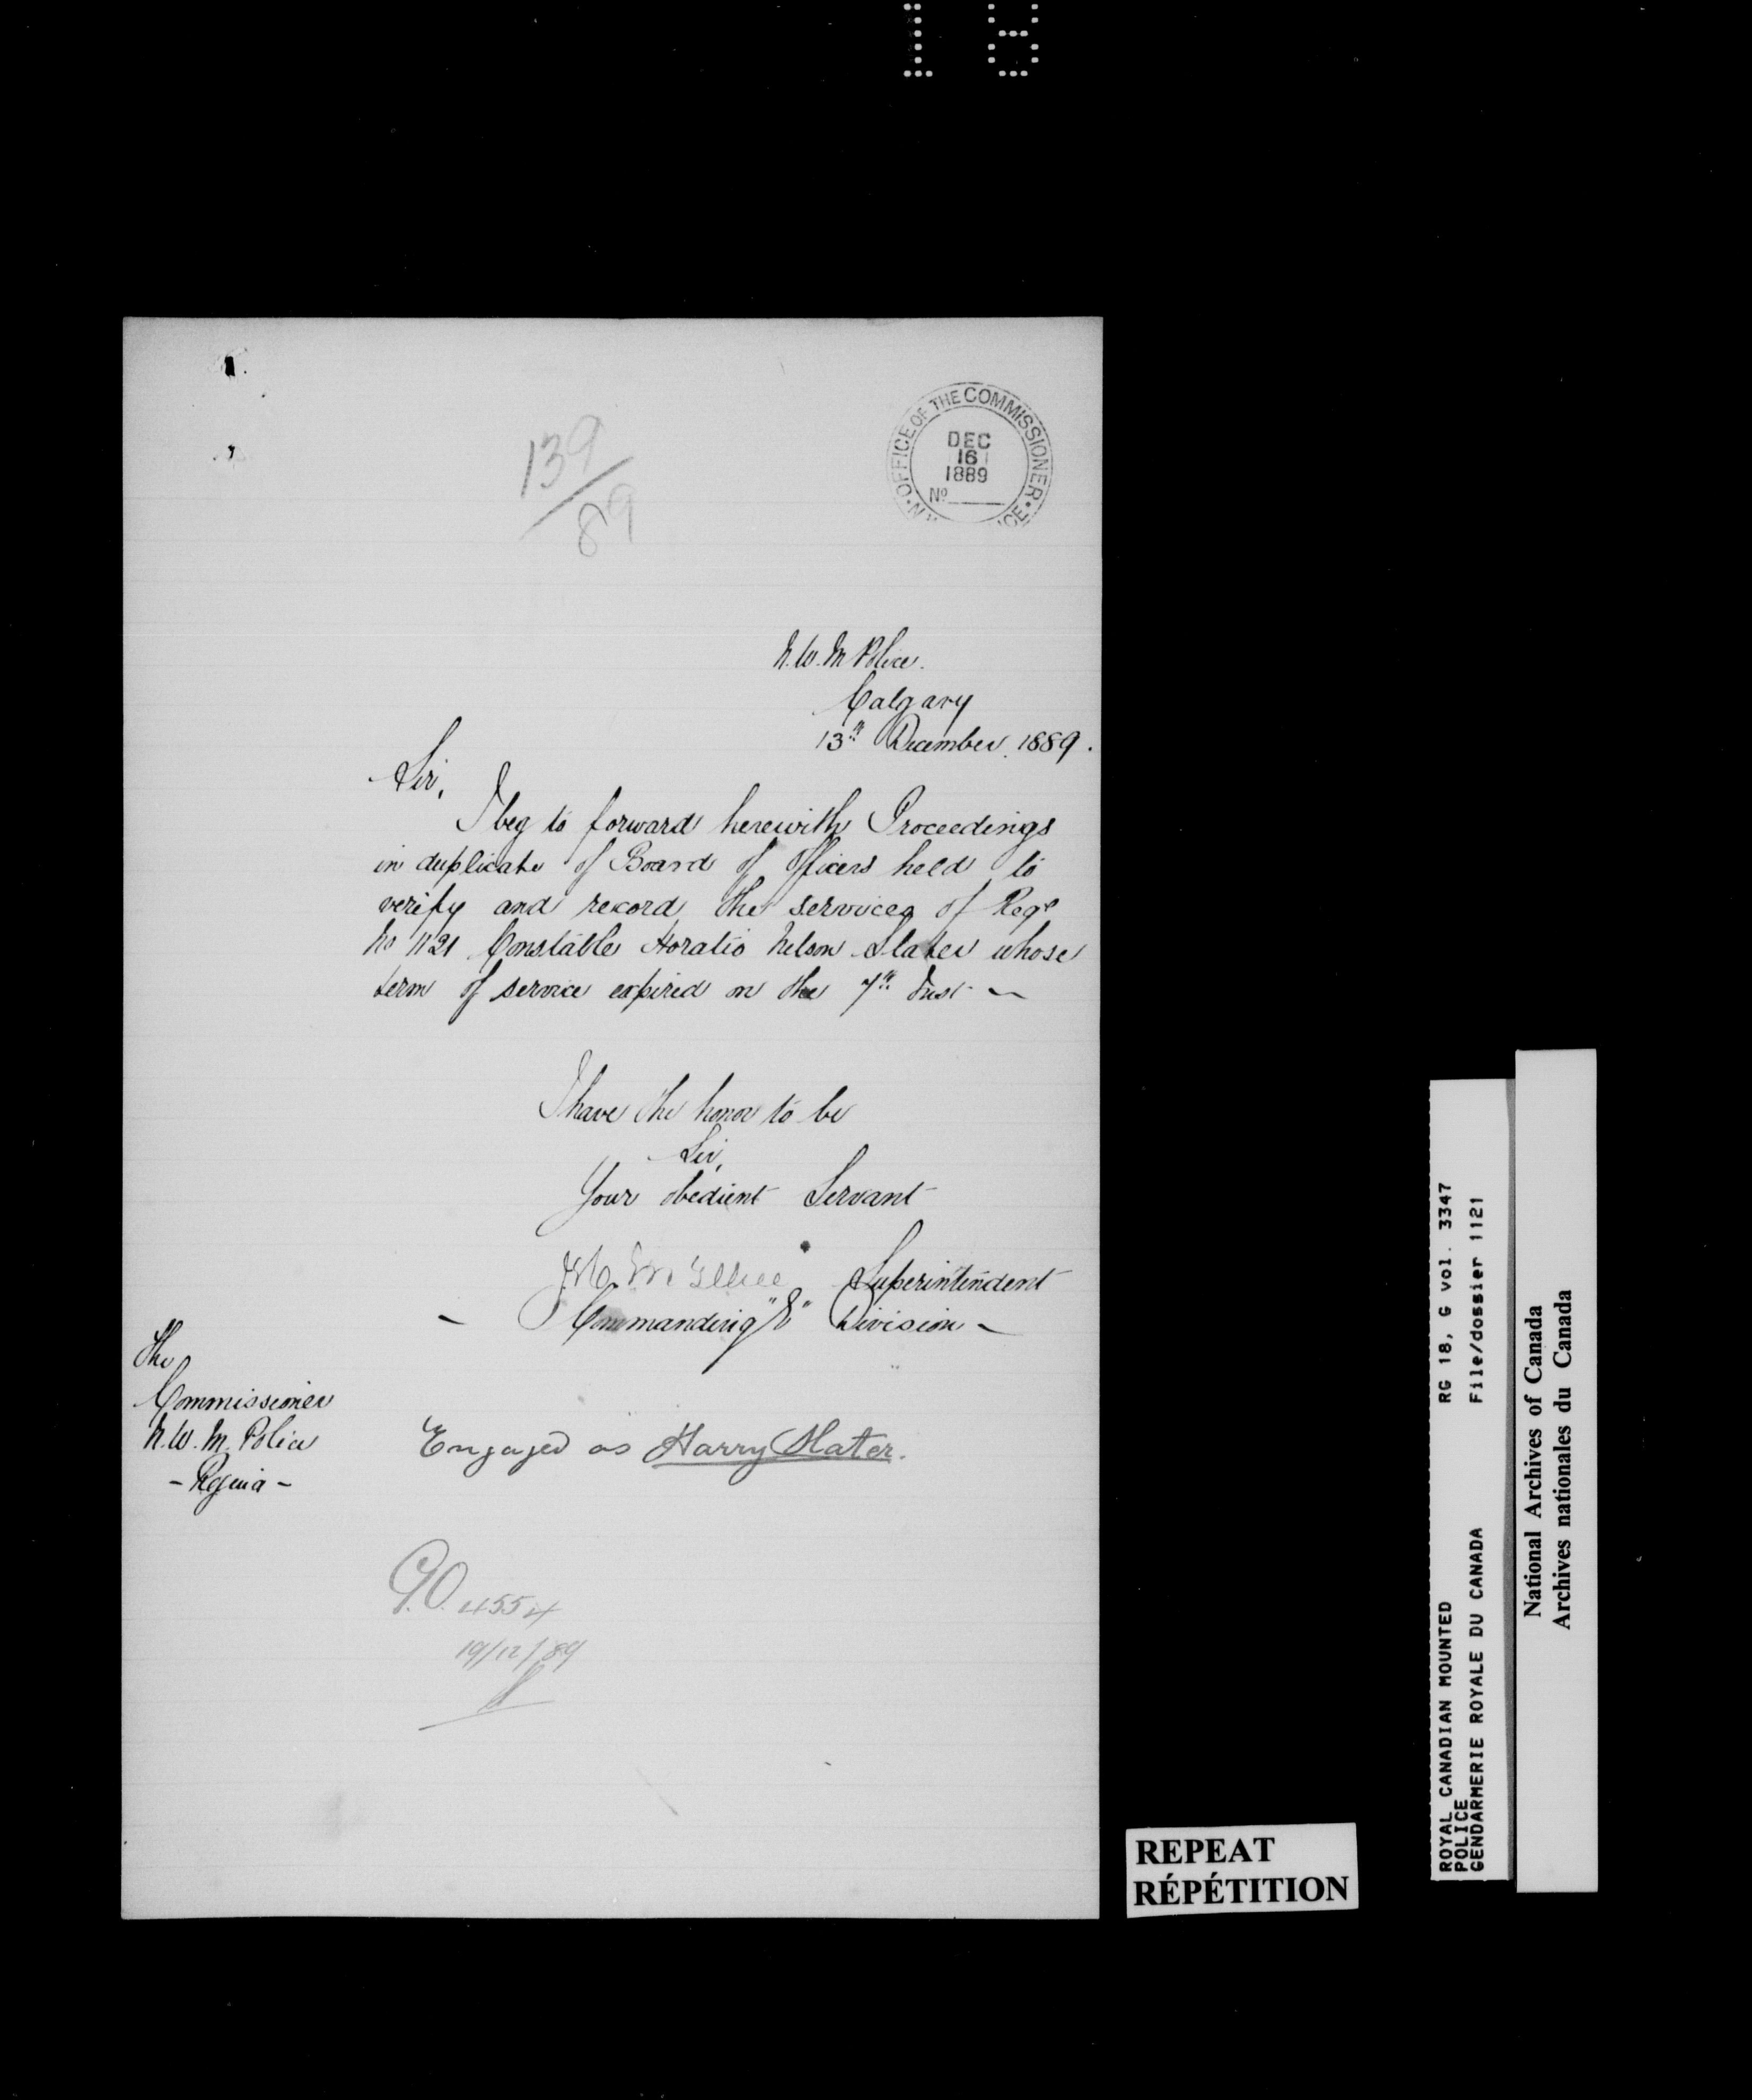 139/89
OFFICE OF THE COMMISSIONER
DEC
16
1889
No
N.W.M Police.
Calgary
13th December. 1889.
Sir,
I beg to forward herewith Proceedings
in duplicate of Board of Officers held to
verify and record the services of Regl
No 1121 Constable Horatio Nelson Slater whose
term of service expired on the 7th Inst
I have the honor to be
Sir,
Your obedient Servant
Superintendent
Commanding "E" Division
The
Commissioner
N.W.M. Police
- Regina -
Engaged as Harry Slater.
G.O. 4554
19/12/89
REPEAT
RÉPÉTITION
ROYAL CANADIAN MOUNTED
POLICE
GENDARMERIE ROYALE DU CANADA
RG 18, G vol. 3347
File/dossier 1121
National Archives of Canada
Archives nationales du Canada